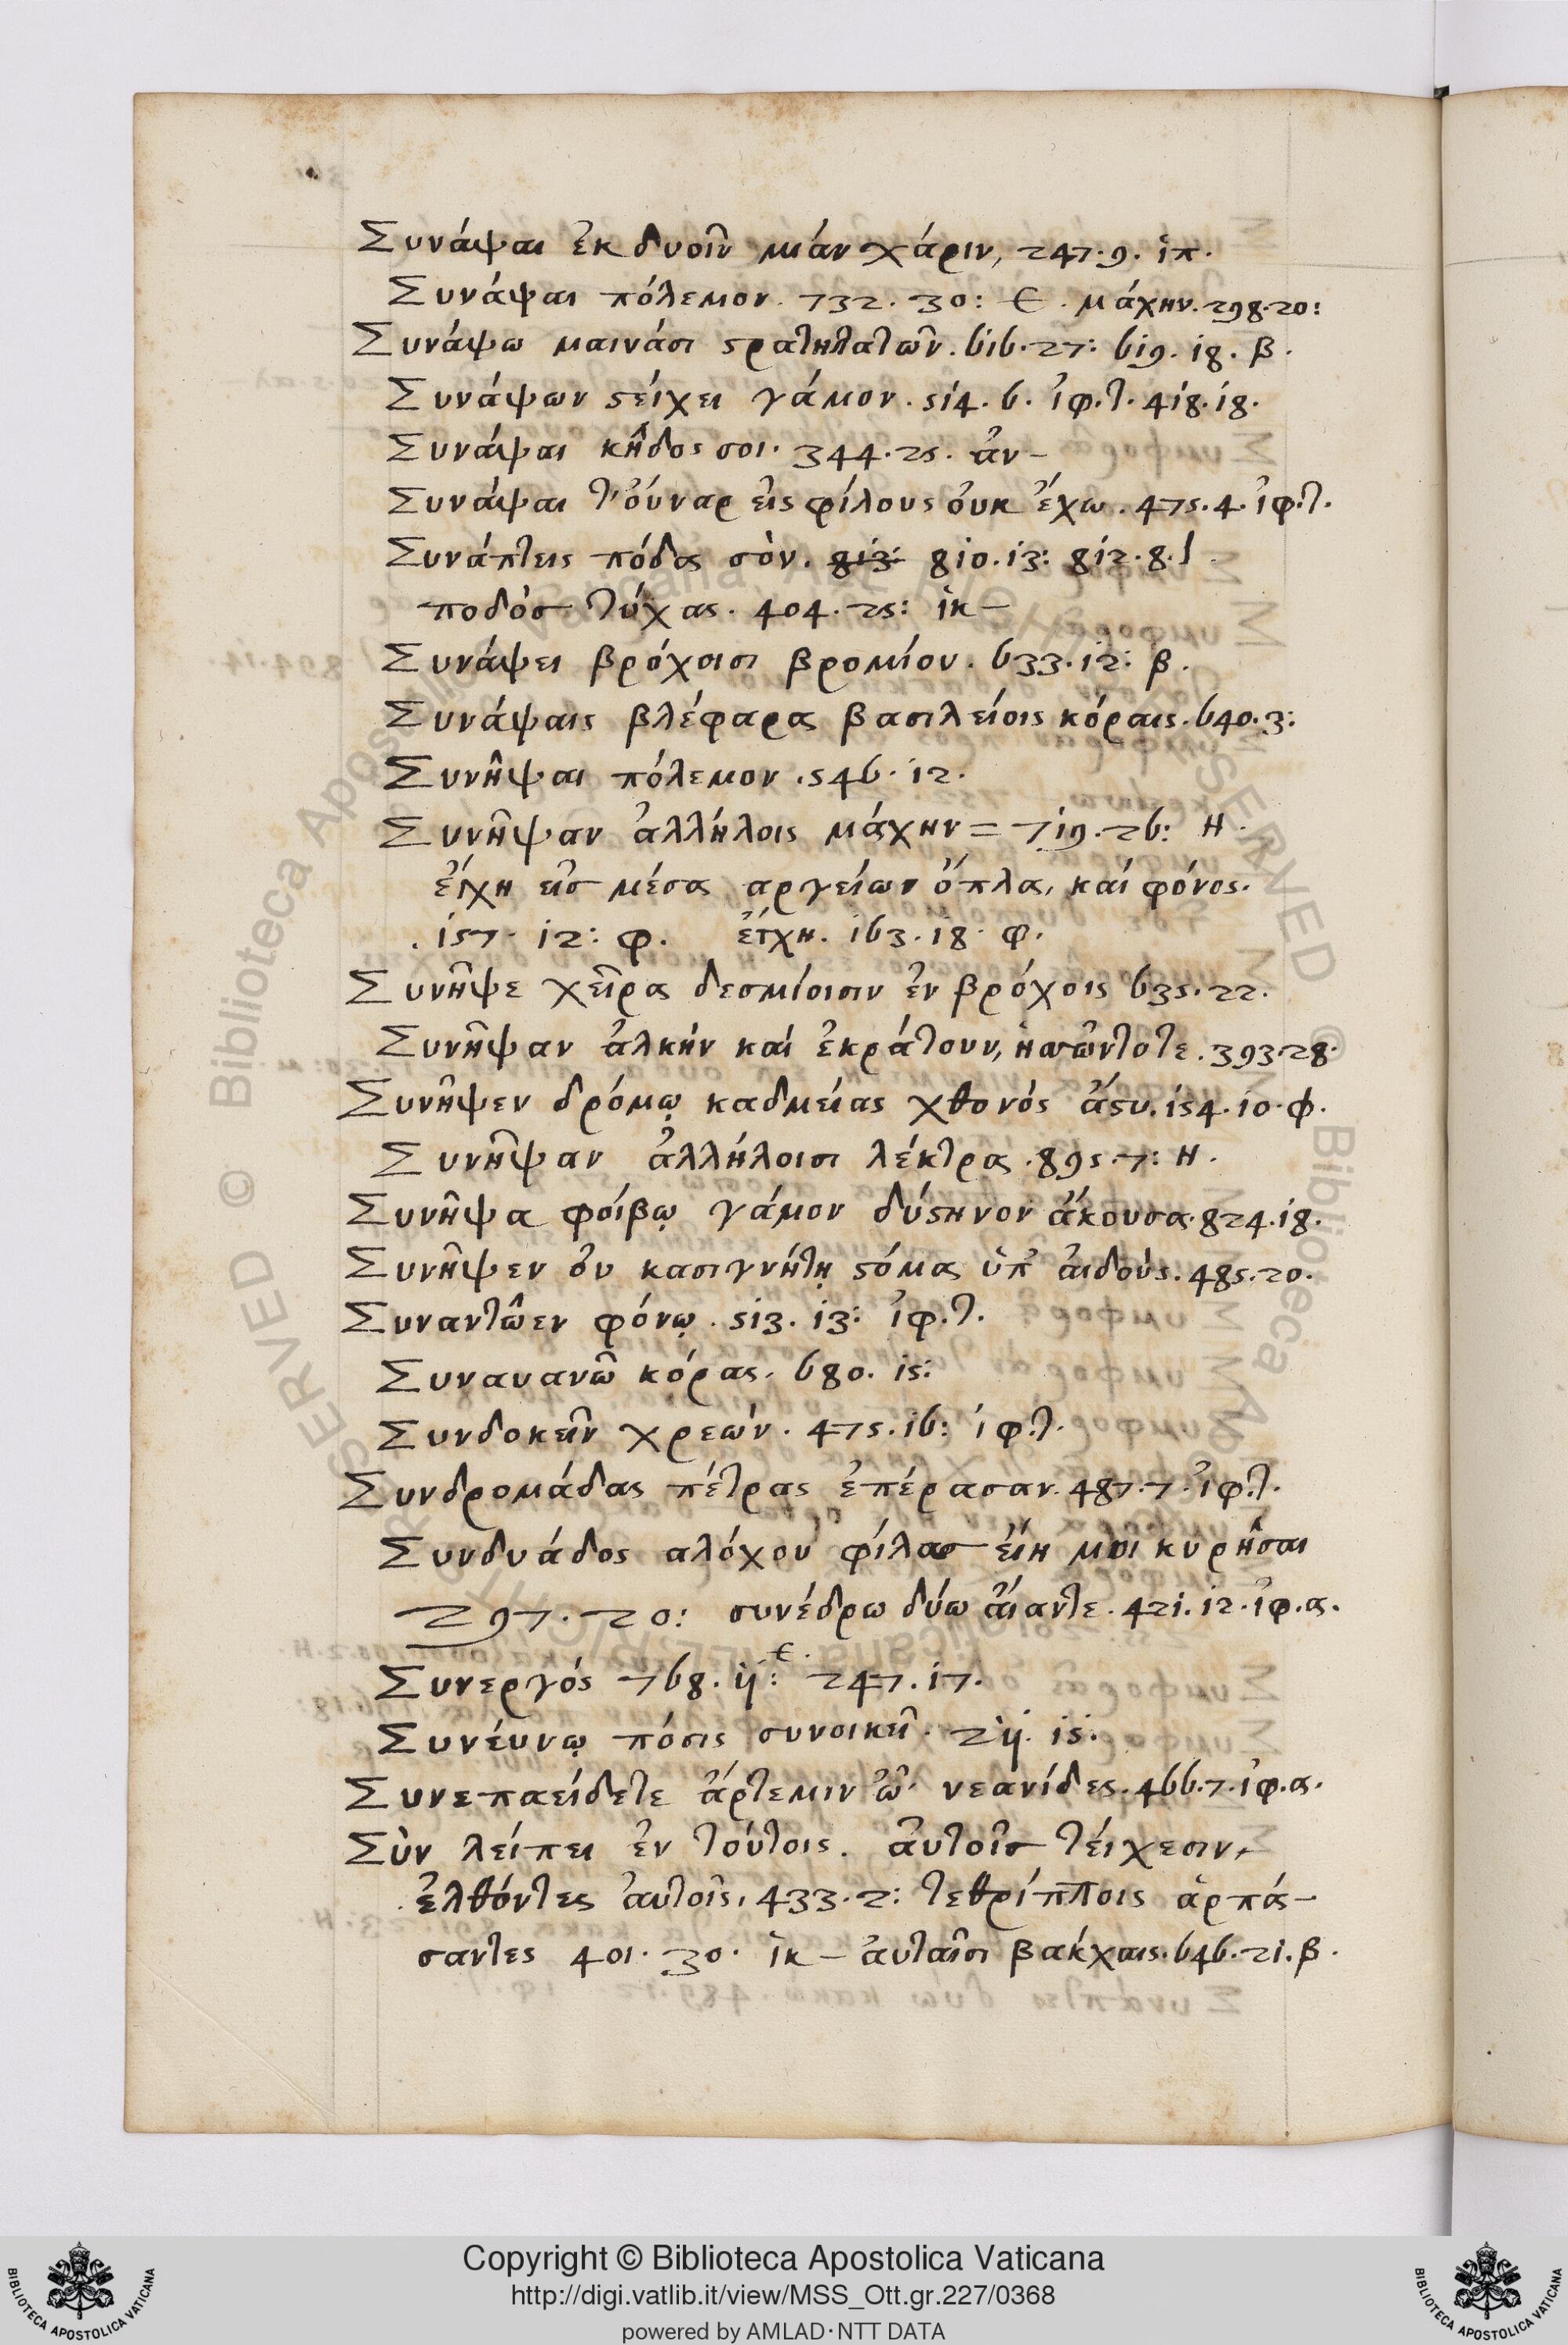 Συνάψαι ἐκ δυοῖν μίαν χάριν, 247.9. ἱπ.
Συνάψαι πόλεμον. 732. 30: ε. μάχην. 298.20:
Συνάψω μαινάσι στρατηλατῶν. 616.27: 619. 18. β.
Συνάψων στείχει γάμον. 514. 6. ἰφ.τ. 418.18.
Συνάψαι κῆδος σοι. 344.25. ἀν-
Συνάψαι τ' οὔναρ εἰς φίλους οὐκ ἔχω. 475.4. ἰφ.τ.
Συνάπτεις πόδα σὸν. 813: 810.13: 812.8.
ποδὸσ τύχας. 404.25: ἱκ-
Συνάψει βρόχοισι βρομίου. 633.12: β.
Συνάψαις βλέφαρα βασιλείοις κόραις. 640.3:
Συνῆψαι πόλεμον. 546.12.
Συνῆψαν ἀλλήλοις μάχην = 719.26: Η.
ἔγχη εἰσ μέσα αργείων ὅπλα, καί φόνος.
.157. 12: φ. ἔγχη. 163.18. φ.
Συνῆψε χεῖρα δεσμίοισιν ἐν βρόχοις 635.22.
Συνῆψαν ἀλκήν καί ἐκράτουν, ἡσσῶντοτε. 393.28.
Συνῆψεν δρόμῳ καδμείας χθονός ἄστυ. 154.10.φ.
Συνῆψαν ἀλλήλοισι λέκτρα. 895.7: Η.
Συνῆψα φοίβῳ γάμον δύστηνον ἄκουσα. 824.18.
Συνῆψεν ὀυ κασιγνήτῃ στόμα ὑπ' αἰδοὺς. 485.20.
Συναντῶεν φόνῳ. 513. 13: ἰφ.τ.
Συναυανῶ κόρας. 680. 15:
Συνδοκεῖν χρεών. 475.16: ἰφ.τ.
Συνδρομάδας πέτρας ἐπέρασαν. 487.7. ἰφ.τ.
Συνδυάδος αλόχου φίλασ εἴη μοι κυρῆσαι
297.20: συνέδρω δύω αἴαντε. 421.12. ἰφ.α.
Συνεργός 768. 11: ε. 247.17.
Συνέυνῳ πόσις συνοικεῖ. 211. 15.
Συνεπαείδετε ἄρτεμιν ὦ νεανίδες. 466.7. ἰφ.α.
Σὺν λείπει ἐν τούτοις. ἀυτοῖσ τείχεσιν,
ἐλθόντες ἀυτοῖς, 433.2: τεθρίπποις ἁρπά-
σαντες 401. 30. ἱκ - ἀυταῖσι βάκχαις. 646.21. β.
Copyright © Biblioteca Apostolica Vaticana
http://digi.vatlib.it/view/MSS_Ott.gr.227/0368
powered by AMLAD·NTT DATA